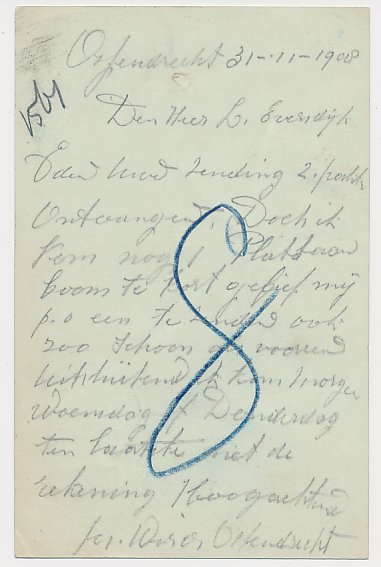 Ossendrecht 31-11-1908
1561
Den Heer L. Eversdijk
Uwe Zending 2
Ontvangen, Doch ik
kom nog 1 Plataan
boom te kort gelief mij
p.o een te zenden ook
200 schoon
uitsluitend ik kom morgen
Woensdag of Donderdag
ten laatste met de
rekening Hoogachtend
Ossendrecht
8